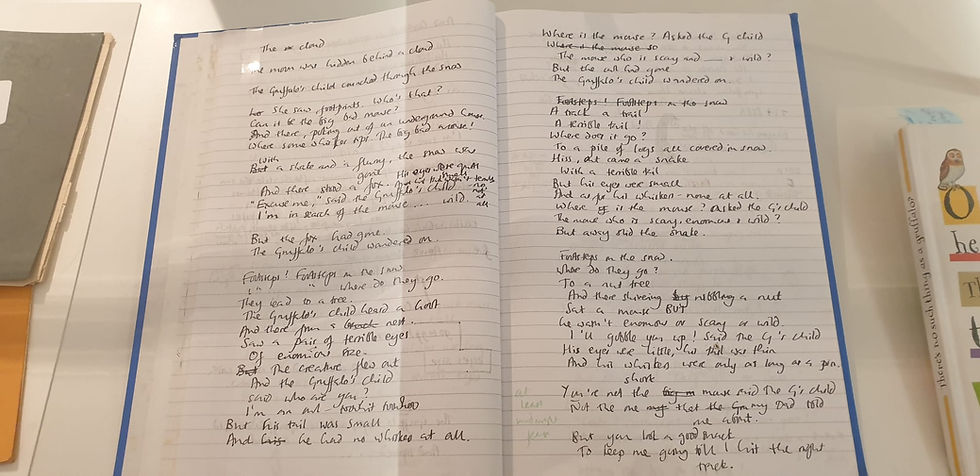 The cloud
The moon was hidden behind a cloud
The Gruffalo's child crunched through the snow
She saw footprints. Who's that?
Can it be the big bad mouse?
And there, poking out of an underground house
Where some whisker tips. The big bad mouse!
With
But a shake and a flurry, the snow was
gone His eyes were
And there stood a fox. And his
"Excuse me," said the Gruffalo's child
I'm in search of the mouse .... wild.
no
at
all
But the fox had gone.
The Gruffalo's child wandered on.
Footsteps! Footsteps in the snow
" " where do they go.
They lead to a tree.
The Gruffalo's child heard a hoot
And there from a nest.
Saw a pair of terrible eyes
Of enormous size.
But The creature flew out
And the Gruffalo's child
said who are you?
I'm an owl
But his tail was small
And his he had no whiskers at all.
Where is the mouse? Asked the G child
Where is the mouse so
The mouse who is scary and ___ & wild?
But the owl had gone
The Gruffalo's child wandered on.
Footsteps! Footsteps in the snow
A track a trail
A terrible tail!
Where does it go?
To a pile of logs all covered in snow.
Hiss, out came a snake
With a terrible tail
But his eyes were small
And as for his whiskers - none at all.
Where is the mouse? Asked the G's child
The mouse who is scary, enormous & wild?
But away slid the snake.
Footsteps in the snow.
Where do they go?
To a nut tree
And there shivering nibbling a nut
Sat a mouse BUT
he wasn't enormous or scary or wild.
I'll gobble you up! Said the G's child
His eyes were little, his tail was thin
And his whiskers were only as long as a pin.
short
You're not the mouse said the G's child
Not the one that the Dad told
me about.
But you look a good snack
To keep me going till I hit the right
track.
at
least
There's no such thing as a gruffalo?
O
he